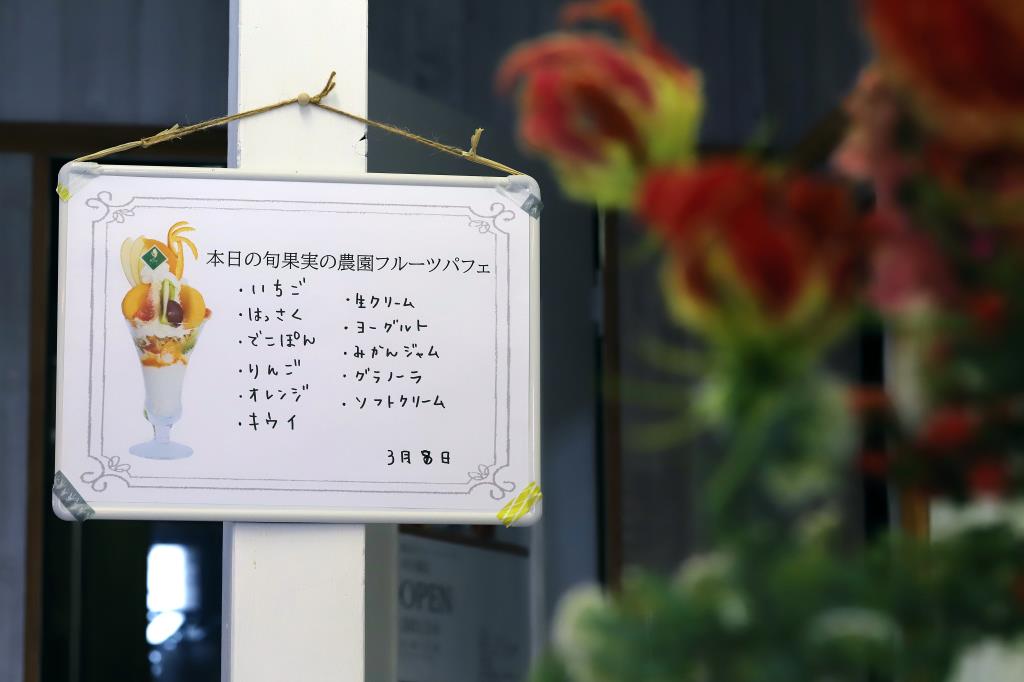 本日の旬果実の農園フルーツパフェ
・いちご
・はっさく
・でこぽん
・りんご
・オレンジ
・キウイ
・生クリーム
・ヨーグルト
・みかんジャム
・グラノーラ
・ソフトクリーム
3月8日
OPEN